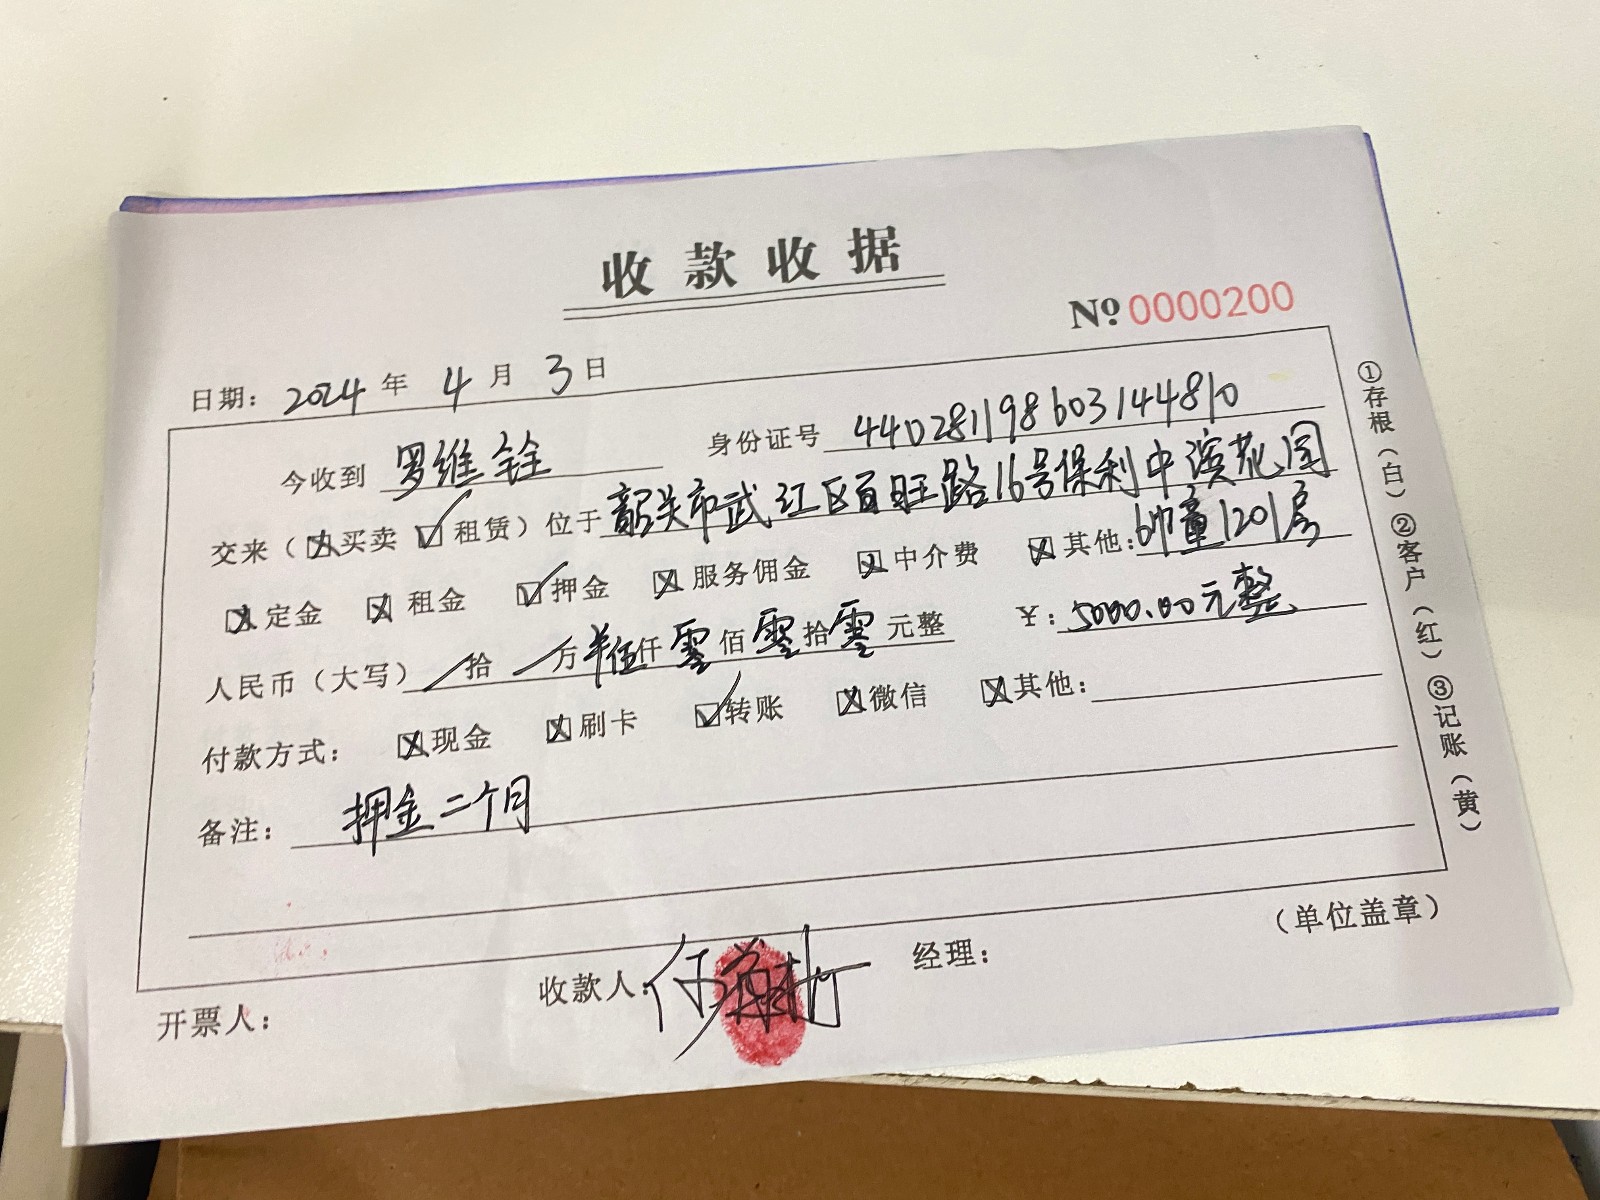 收款收据
№ 0000200
日期： 2024 年 4 月 3 日
今收到 罗维铨 身份证号 440281198603144810
交来（☒买卖 ☑租赁）位于 韶关市武江区百旺路16号保利中溪花园
☒定金 ☒租金 ☑押金 ☒服务佣金 ☒中介费 ☒其他： 6帅童1201房
人民币（大写） / 拾 / 万 伍仟 零 佰 零 拾 零 元整 ￥： 5000.00元整
付款方式： ☒现金 ☒刷卡 ☑转账 ☒微信 ☒其他：
备注： 押金二个月
（单位盖章）
开票人： 收款人： 经理：
①存根（白）②客户（红）③记账（黄）